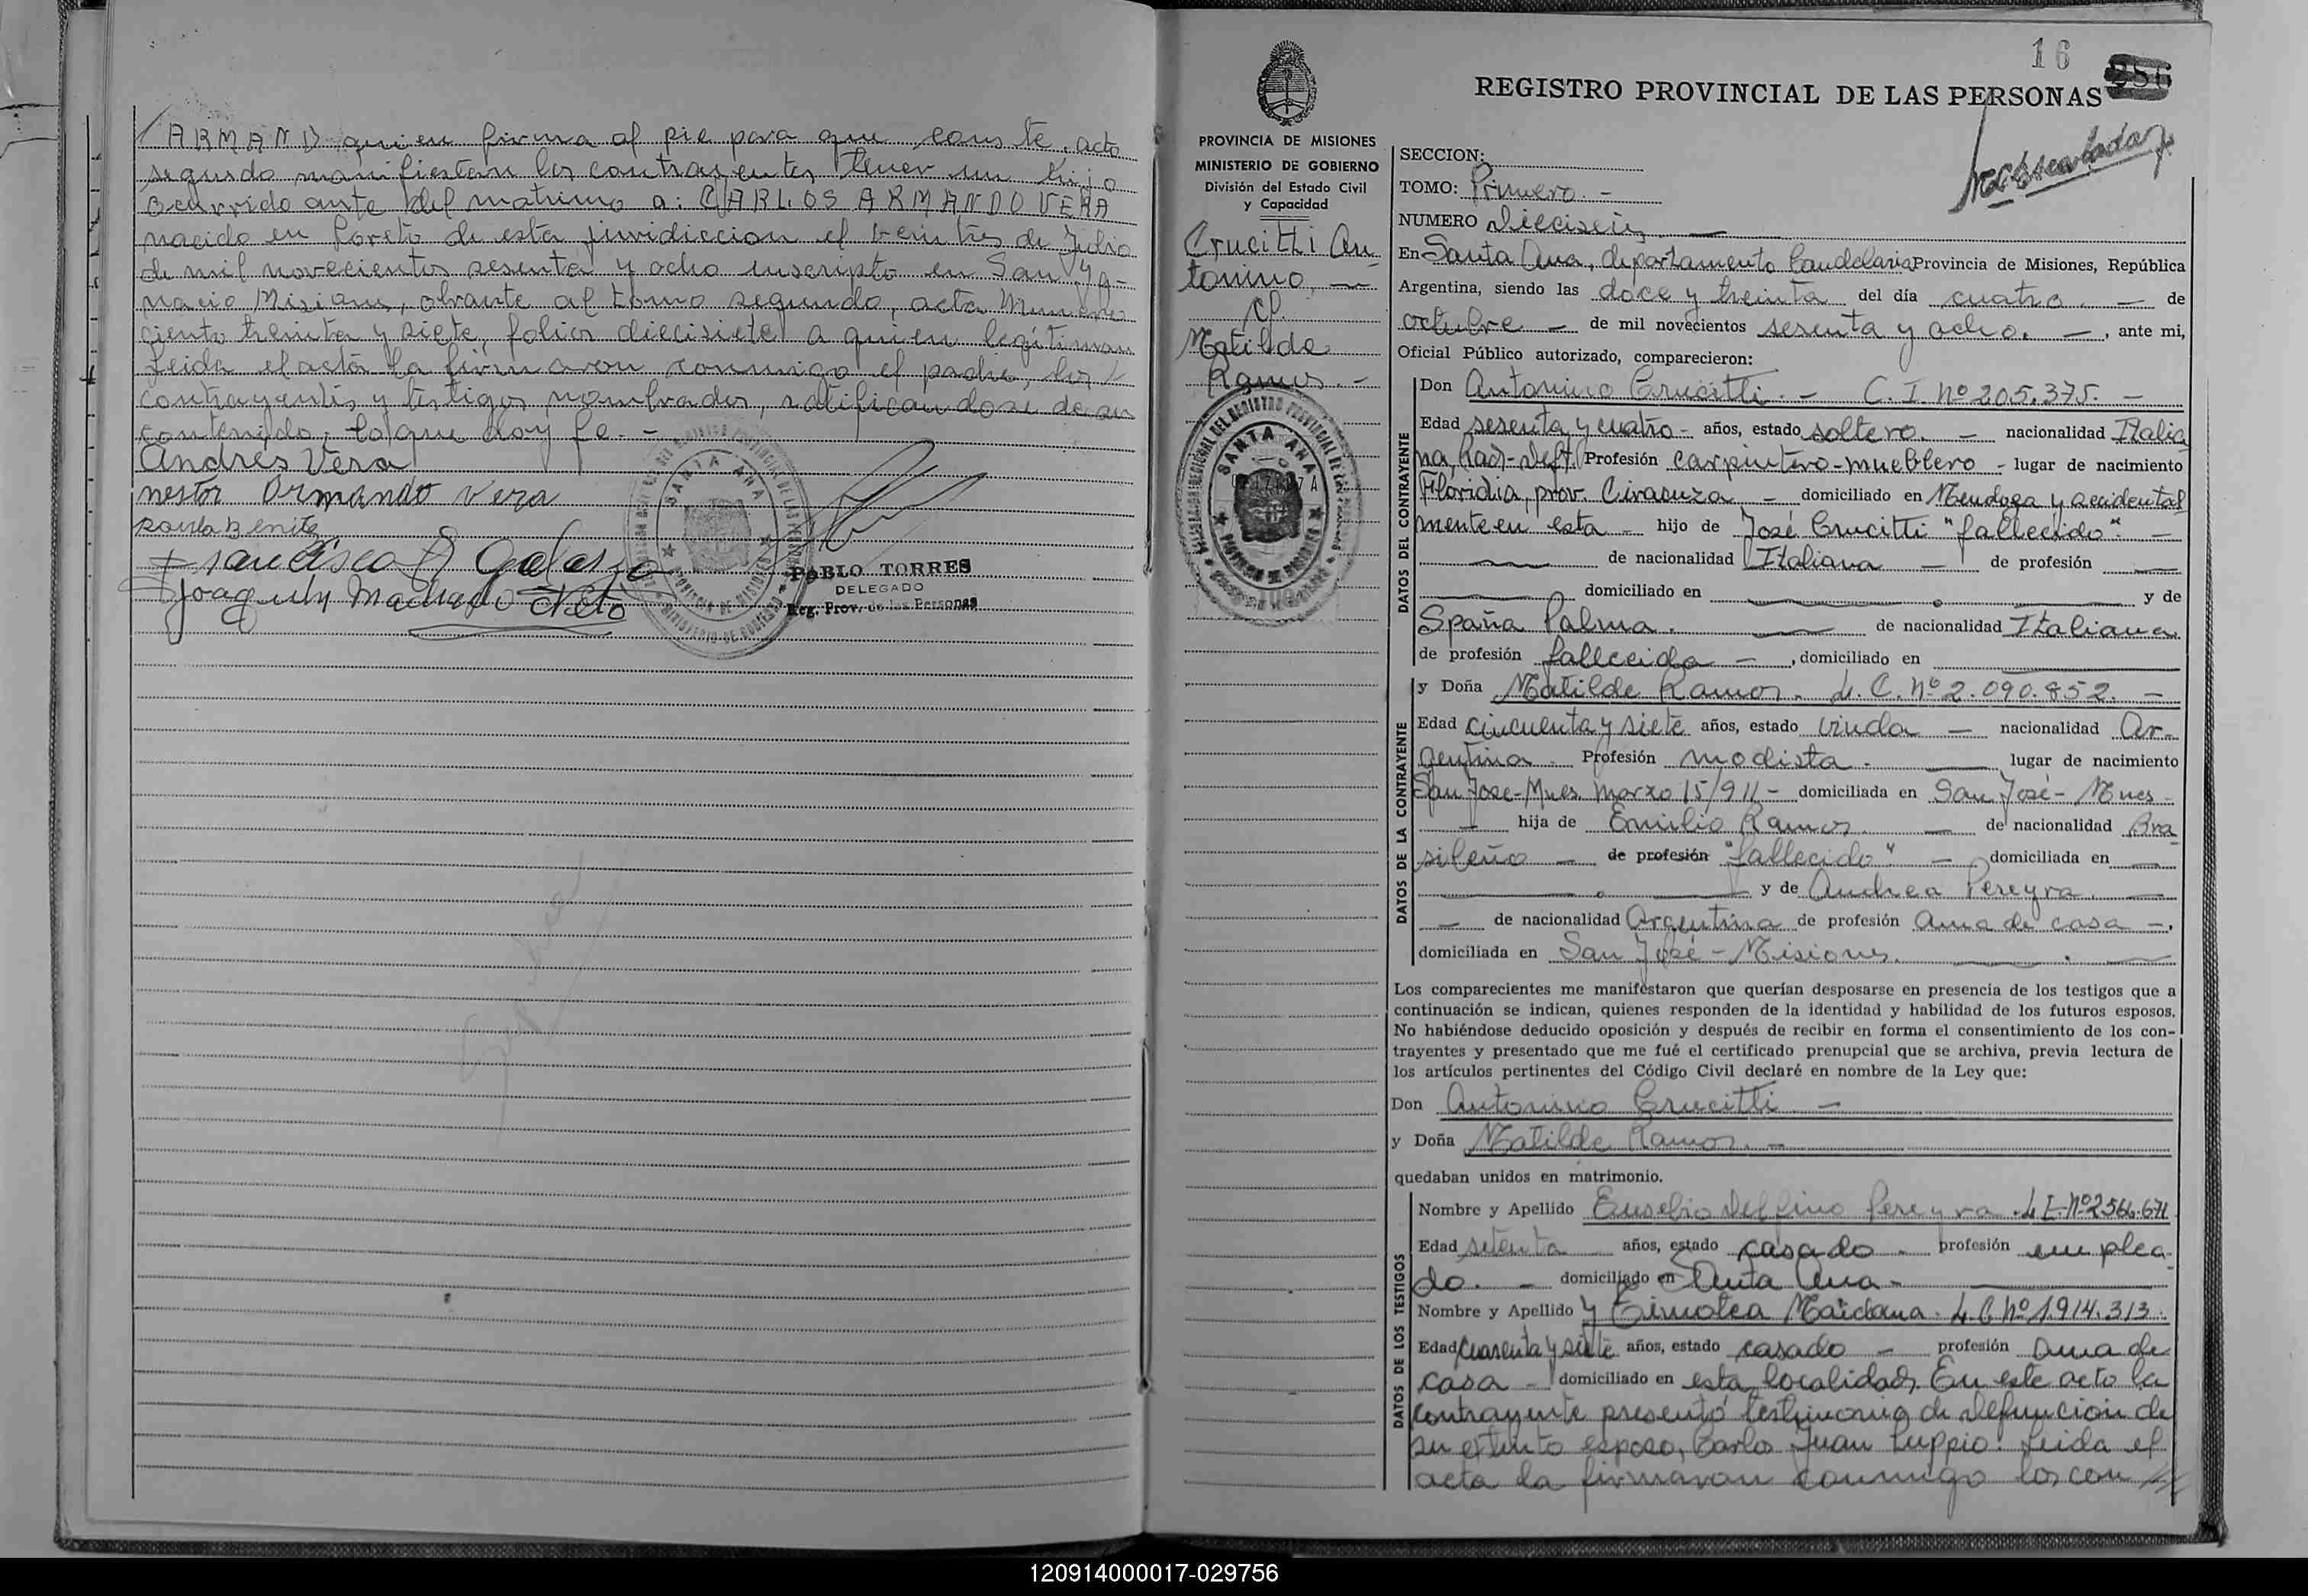 ARMANDO quien firma al pie para que conste, acto
seguido manifiestan los contrayentes tener un hijo
ocurrido ante del matrimo a: CARLOS ARMANDO VERA
nacido en Loreto de esta juridiccion el veintres de Julio
de mil novecientos sesenta y ocho inscripto en San Yg-
nacio Misiones, obrante al tomo segundo, acta número
ciento treinta y siete, folios diecisiete a quien legitiman
Leida el acta la firmaron conmigo el padre, los
contrayentes y testigos nombrados, ratificandose de su
contenido; lo que doy fe. -
Andrés Vera
nestor Armando vera
Francisco Galarza
Joaquin Machado Neto
SANTA ANA
PABLO TORRES
DELEGADO
Reg. Prov. de las Personas
16
REGISTRO PROVINCIAL DE LAS PERSONAS
PROVINCIA DE MISIONES
MINISTERIO DE GOBIERNO
División del Estado Civil
y Capacidad
Crucitti An
tonino, -
c/
Matilde
Ramos. -
SANTA ANA
SECCION:
TOMO: Primero. -
NUMERO Dieciseis -
En Santa Ana, departamento Candelaria Provincia de Misiones, República
Argentina, siendo las doce y treinta del día cuatro. - de
octubre - de mil novecientos sesenta y ocho. - , ante mi,
Oficial Público autorizado, comparecieron:
DATOS DEL CONTRAYENTE
Don Antonino Crucitti. - C. I. Nº 205.375. -
Edad sesenta y cuatro - años, estado soltero. - nacionalidad Italia
na, Profesión carpintero-mueblero - lugar de nacimiento
Floridia, prov. Ciracuza - domiciliado en Mendoza y accidental
mente en esta - hijo de José Crucitti "fallecido". -
de nacionalidad Italiana - de profesión
domiciliado en y de
Spaña Palma. de nacionalidad Italiana.
de profesión fallecida - , domiciliado en
DATOS DE LA CONTRAYENTE
y Doña Matilde Ramos. L. C. Nº 2.090.852. -
Edad cincuenta y siete años, estado viuda - nacionalidad Ar-
gentina - Profesión modista. lugar de nacimiento
San Jose-Mnes. marzo 15/911 - domiciliada en San José - Mnes -
- hija de Emilio Ramos. - de nacionalidad Bra
sileño - de profesión "fallecido" - domiciliada en -
y de Andrea Pereyra. -
- de nacionalidad Argentina de profesión ama de casa -.
domiciliada en San José - Misiones.
Los comparecientes me manifestaron que querían desposarse en presencia de los testigos que a
continuación se indican, quienes responden de la identidad y habilidad de los futuros esposos.
No habiéndose deducido oposición y después de recibir en forma el consentimiento de los con-
trayentes y presentado que me fué el certificado prenupcial que se archiva, previa lectura de
los artículos pertinentes del Código Civil declaré en nombre de la Ley que:
Don Antonino Crucitti. -
y Doña Matilde Ramos. -
quedaban unidos en matrimonio.
DATOS DE LOS TESTIGOS
Nombre y Apellido Eusebio Delfino Pereyra. L E. Nº 2564.671
Edad setenta años, estado casado - profesión emplea-
do. - domiciliado en Santa Ana -
Nombre y Apellido y Timotea Maidana. L. C Nº 1.914.313.
Edad cuarenta y siete años, estado casado - profesión ama de
casa - domiciliado en esta localidad. En este acto la
contrayente presentó testimonio de defuncion de
su extinto esposo, Carlos Juan Luppio. Leida el
acta la firmaron conmigo los con
120914000017-029756